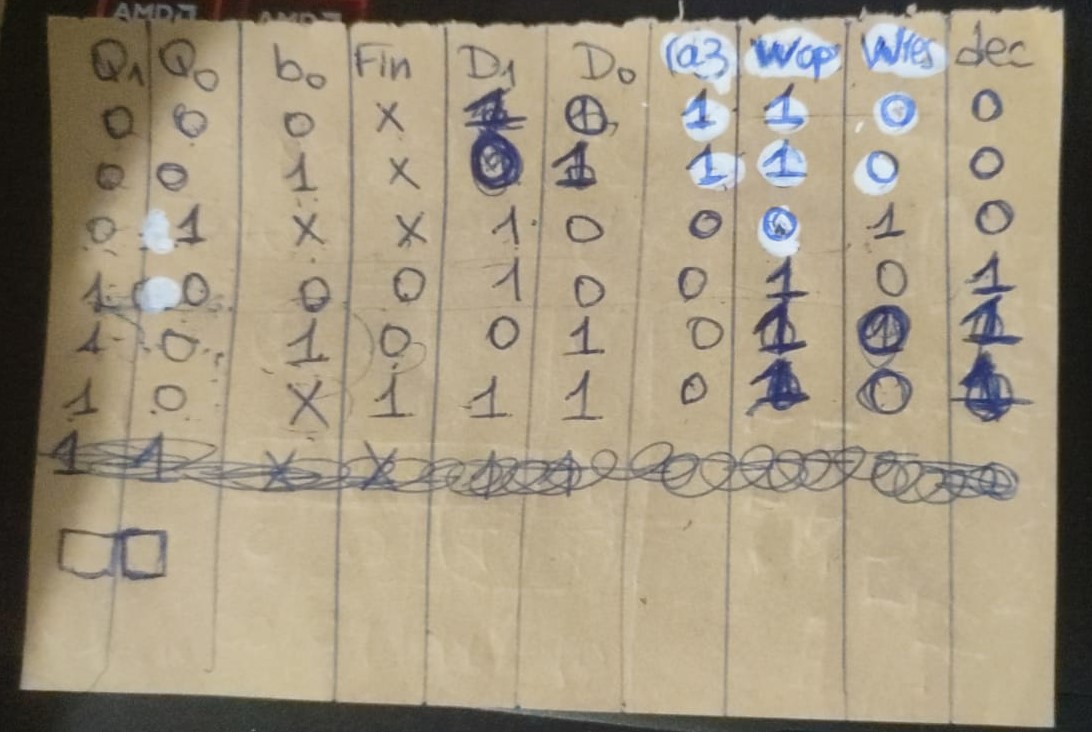 AMD AMD
Q1 Q0 b0 Fin D1 D0 Wop Wres dec
0 0 0 X 1 0 1 1 0 0
0 0 1 X 0 1 1 1 0 0
0 1 X X 1 0 0 0 1 0
1 0 0 0 1 0 0 1 0 1
1 0 1 0 0 1 0 1 1 1
1 0 X 1 1 1 0 1 0